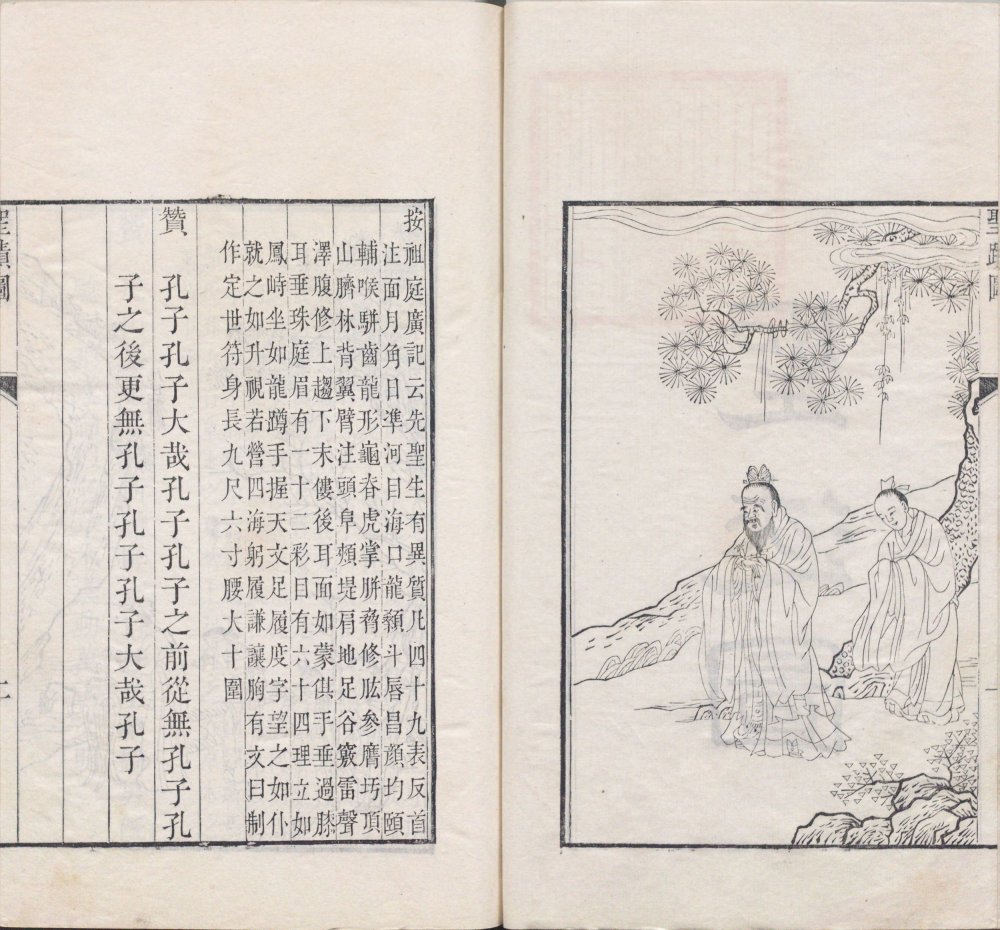 聖蹟圖
按祖庭廣記云先聖生有異質凡四十九表反首
洼面月角日準河目海口龍顙斗唇昌顏均頤
輔喉駢齒龍形龜脊虎掌胼脅修肱參膺圬頂
山臍林背翼臂注頭阜頰堤肩地足谷竅雷聲
澤腹修上趨下末僂後耳面如蒙倛手垂過膝
耳垂珠庭眉有一十二彩目有六十四理立如
鳳峙坐如龍蹲手握天文足履度字望之如仆
就之如升視若營四海躬履謙讓胸有文曰制
作定世符身長九尺六寸腰大十圍
贊 孔子孔子大哉孔子孔子之前從無孔子孔
子之後更無孔子孔子孔子大哉孔子
聖蹟圖